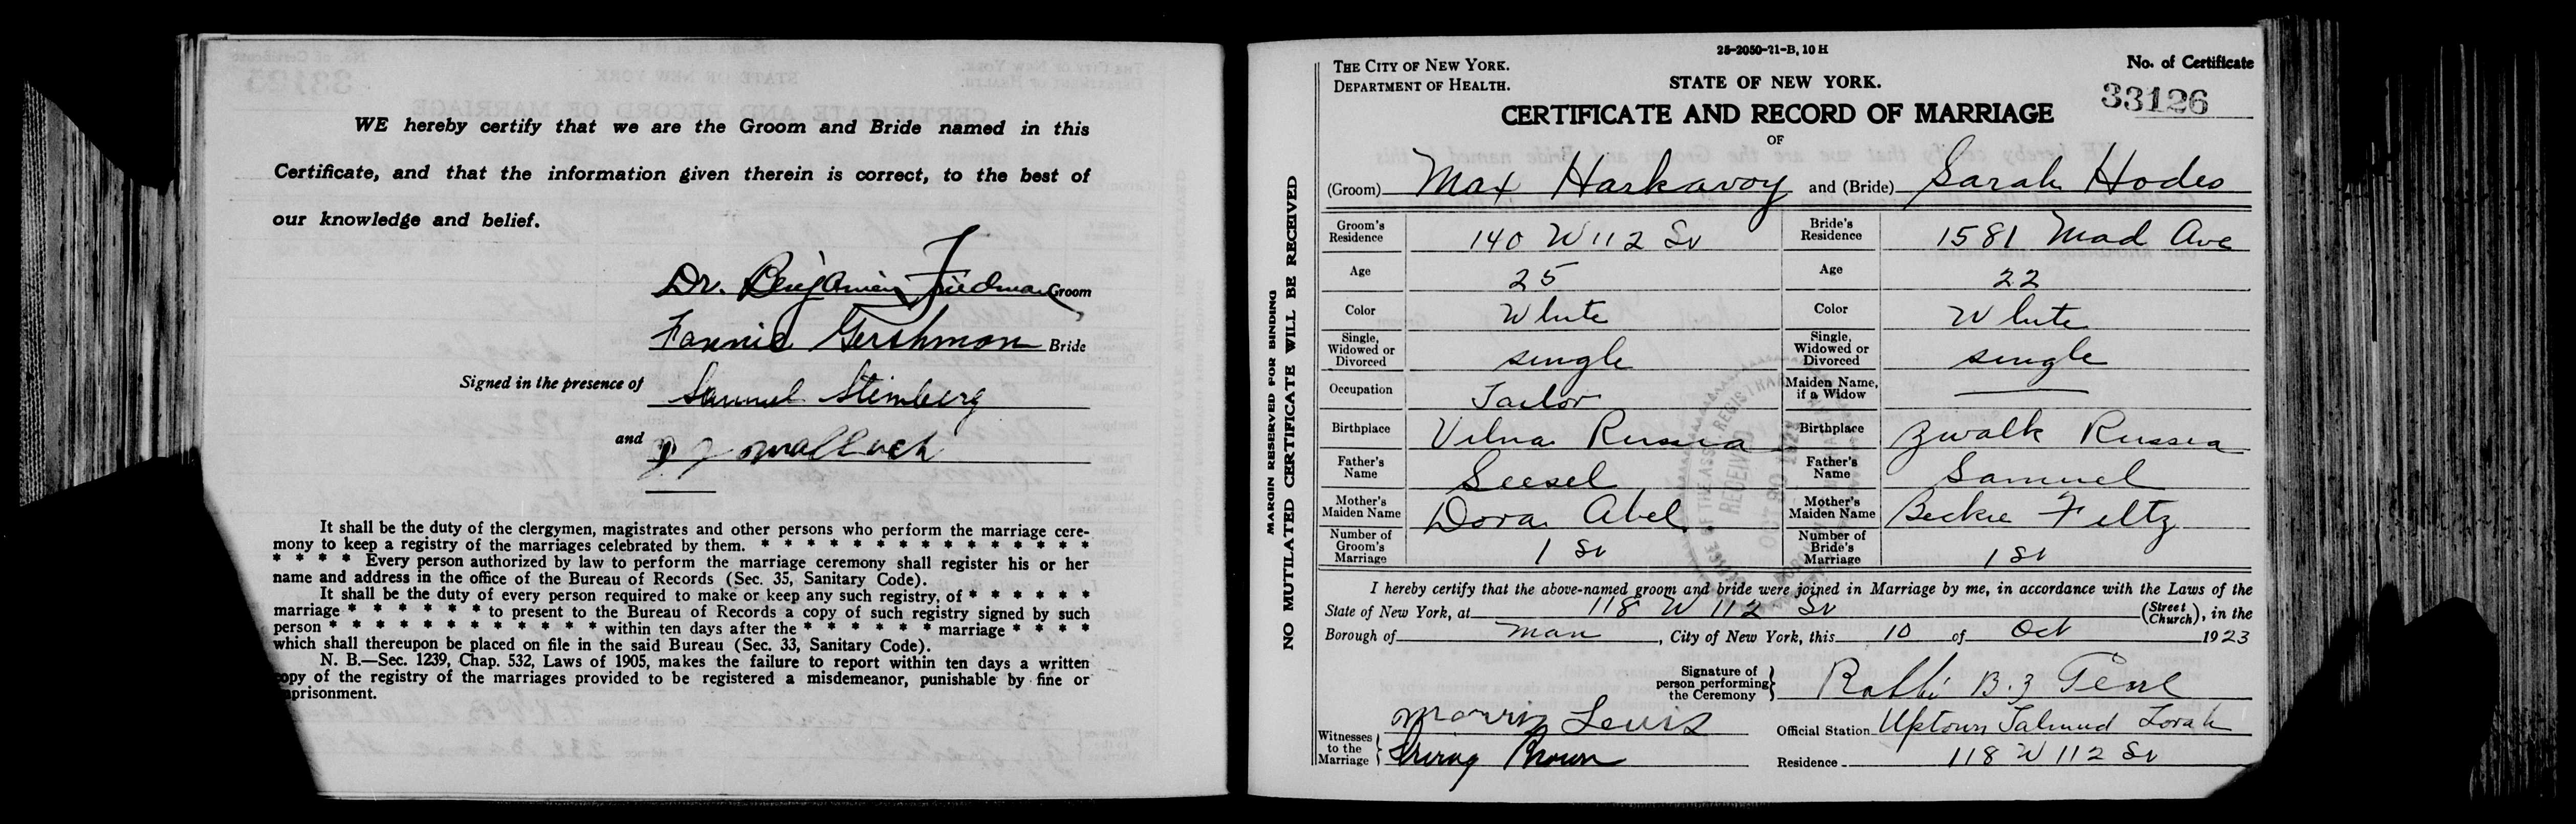 WE hereby certify that we are the Groom and Bride named in this
Certificate, and that the information given therein is correct, to the best of
our knowledge and belief.
Dr. Benjamin Friedman Groom
Fannie Gershman Bride
Signed in the presence of Samuel Steinberg
and Wallach
It shall be the duty of the clergymen, magistrates and other persons who perform the marriage cere-
mony to keep a registry of the marriages celebrated by them. * * * * * * * * * * * * * * *
* * * * Every person authorized by law to perform the marriage ceremony shall register his or her
name and address in the office of the Bureau of Records (Sec. 35, Sanitary Code).
It shall be the duty of every person required to make or keep any such registry, of * * * * * *
marriage * * * * * * to present to the Bureau of Records a copy of such registry signed by such
person * * * * * * * * * * * * within ten days after the * * * * * * marriage * * * *
which shall thereupon be placed on file in the said Bureau (Sec. 33, Sanitary Code).
N. B.—Sec. 1239, Chap. 532, Laws of 1905, makes the failure to report within ten days a written
copy of the registry of the marriages provided to be registered a misdemeanor, punishable by fine or
imprisonment.
MARGIN RESERVED FOR BINDING
NO MUTILATED CERTIFICATE WILL BE RECEIVED
25-2050-21-B, 10 H
THE CITY OF NEW YORK.
DEPARTMENT OF HEALTH.
STATE OF NEW YORK.
No. of Certificate
33126
CERTIFICATE AND RECORD OF MARRIAGE
OF
(Groom) Max Harkavoy and (Bride) Sarah Hodes
Groom's Residence 140 W 112 St Bride's Residence 1581 Mad Ave
Age 25 Age 22
Color White Color White
Single, Widowed or Divorced single Single, Widowed or Divorced single
Occupation Tailor Maiden Name, if a Widow —
Birthplace Vilna Russia Birthplace Zwalk Russia
Father's Name Seesel Father's Name Samuel
Mother's Maiden Name Dora Abel Mother's Maiden Name Beckie Feltz
Number of Groom's Marriage 1 St Number of Bride's Marriage 1 St
I hereby certify that the above-named groom and bride were joined in Marriage by me, in accordance with the Laws of the
State of New York, at 118 W 112 St (Street Church), in the
Borough of Man, City of New York, this 10 of Oct 1923
Signature of person performing the Ceremony Rabbi B. Z Pearl
Witnesses to the Marriage Morris Lewis
Irving Brown
Official Station Uptown Talmud Torah
Residence 118 W 112 St